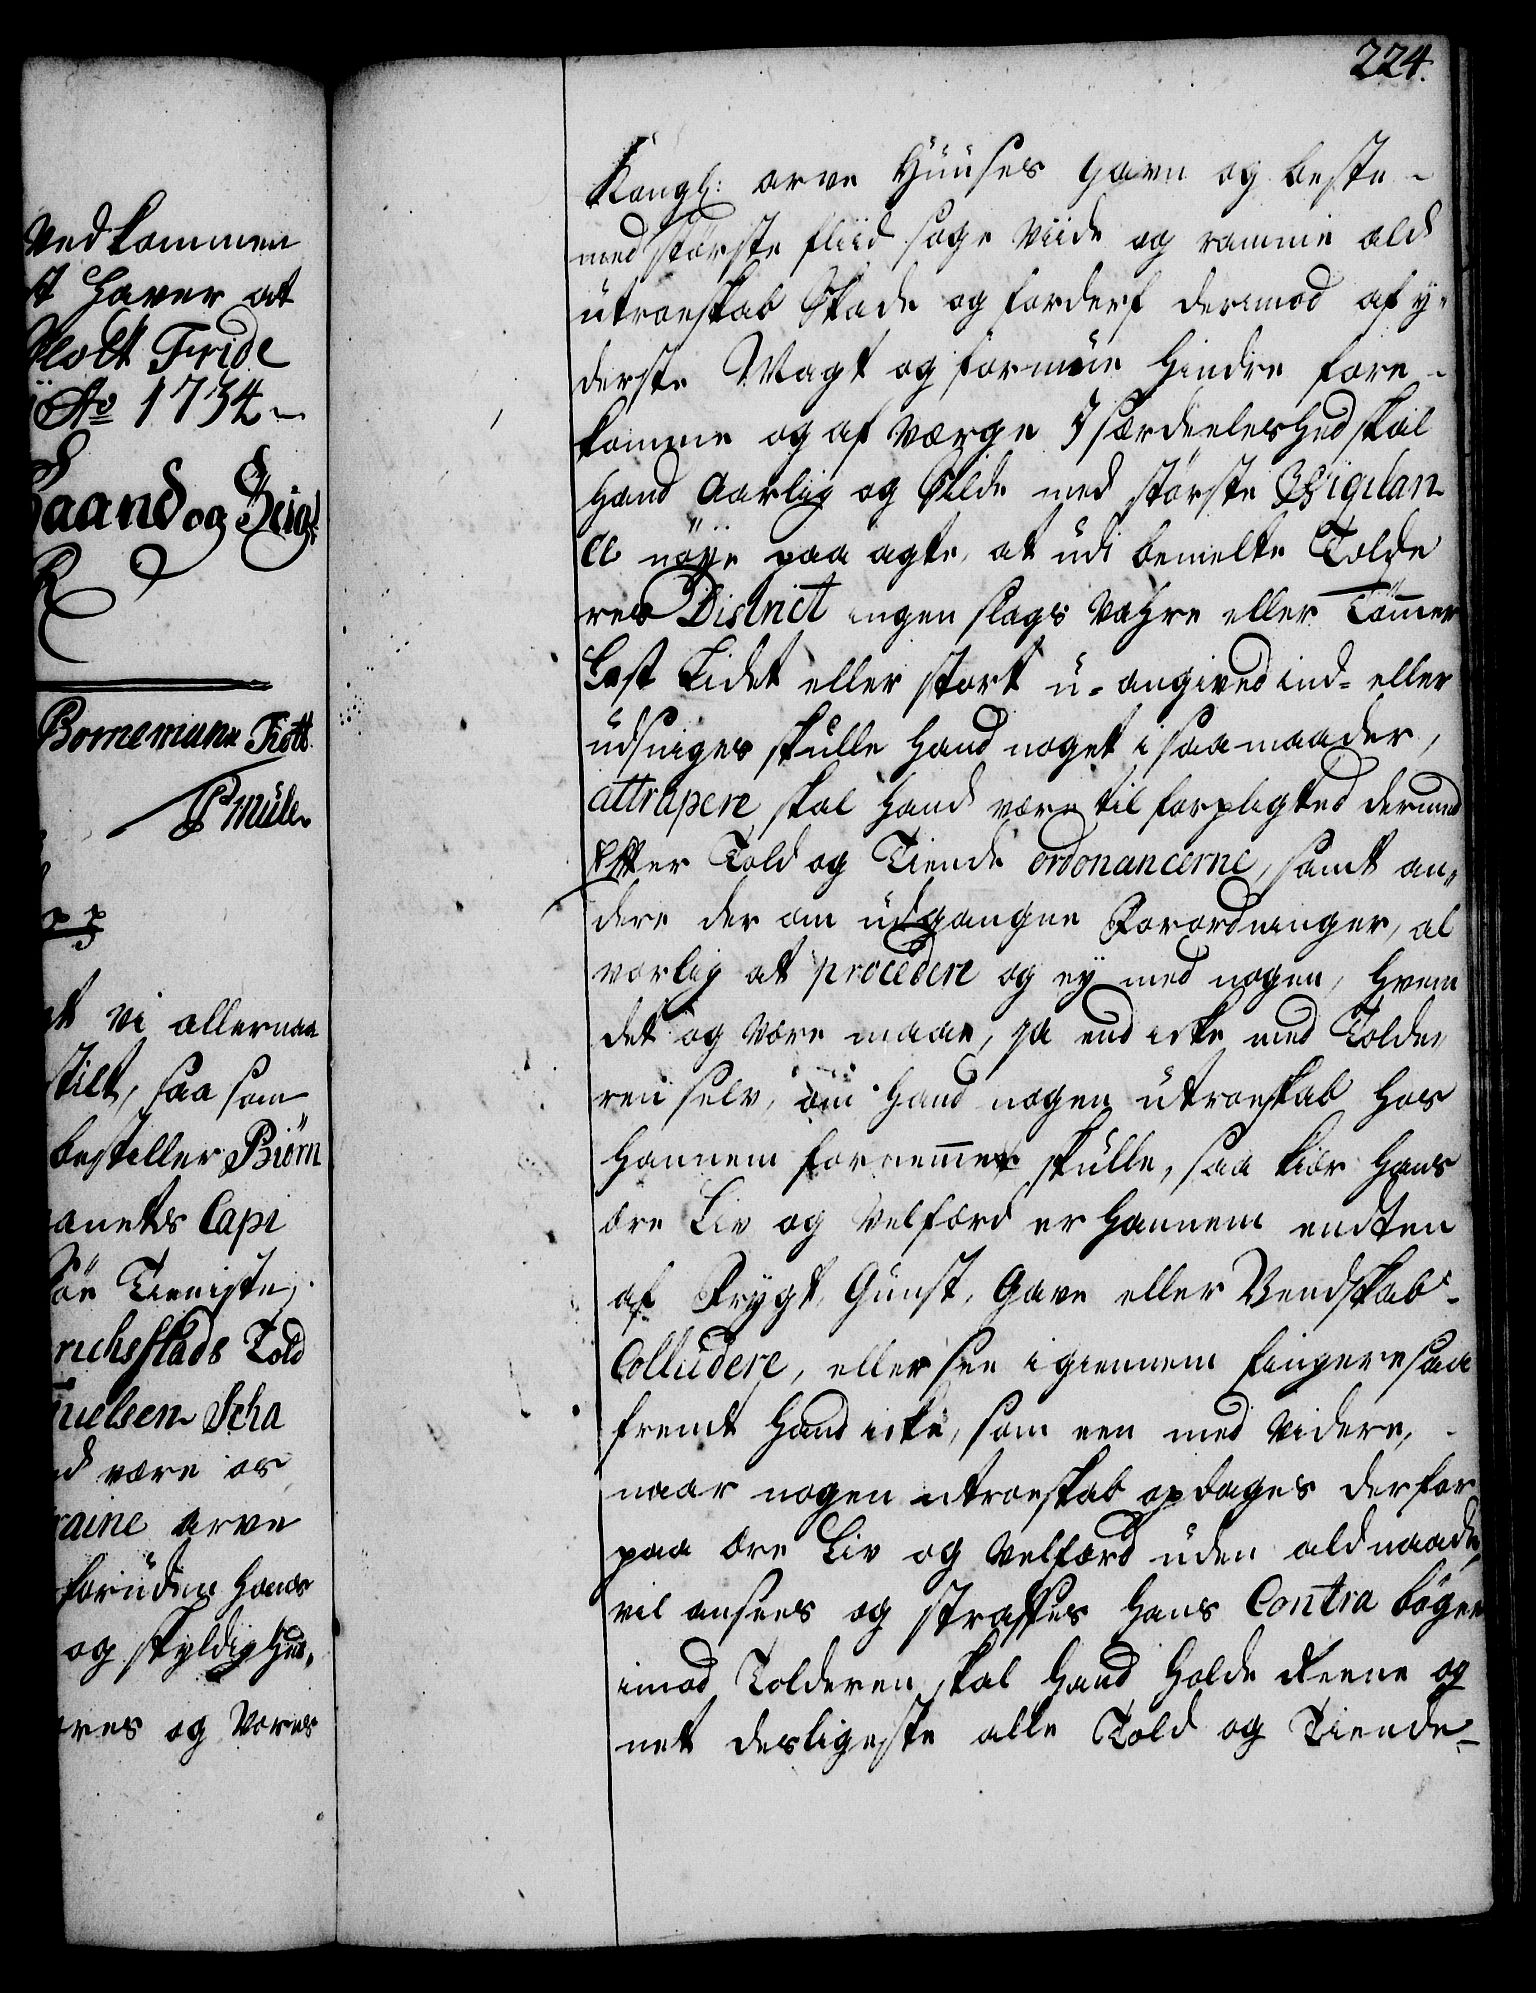 224.
Kongl: arve Huuses Gavn og beste -
med største fliid søge Viide og ramme ald
utroeskab Skade og forderf derimod af y-
derste Magt og formue hindre fore-
komme og af Værge J særdeeleshed skal
hand Aarlig og Silde med største Vigilan-
ce nøye paa agte, at udi bemelte Tolde
res District ingen slags Vahre eller Tømer
Last Lidet eller stort u-angived ind- eller
udsniges skulle hand noget i saa maader,
attrapere skal hand være til forpligted dermed
Efter Told og Tiende ordonancerne, samt an-
dere der om udgangne Forordninger, al
vorlig at procedere og ey med nogen, hvem
det og være maae, ja end icke med Tolde-
ren selv, om hand nogen utroeskab hos
hannem fornemet skulle, saa kiær hans
ære Liv og Velfærd er hannem endten
af Frygt, Gunst, Gave eller Vendskab-
Colludere, eller see igiennem fingere saa
fremt hand icke, som een med videre,
naar nogen utroeskab opdages derfor
paa ære Liv og Velfærd uden ald naade
vil ansees og straffes hans Contra bøger
imod Tolderen skal hand holde Reene og
net desligeste alle Told og Tiende-
Vedkommen
st haver at
Slott Fride
Ao 1734
Haand og Seigl
R
Bornemann Kott.
P Müle
at Vi allernaa
stilt, saa som
bestiller Biørn
anets Capi
Søe Tieniste
richsstads Told
nielsen Scha
d være os
raine arve
foruden hans
og skyldig hed,
ores og Vores